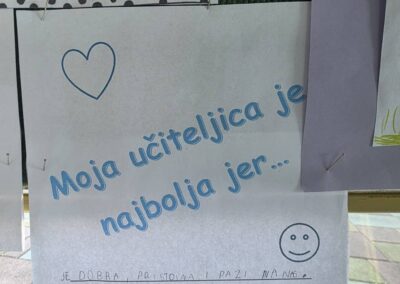 Moja učiteljica je
najbolja jer...
JE DOBRA, PRISTOJNA I PAZI NA NAS.